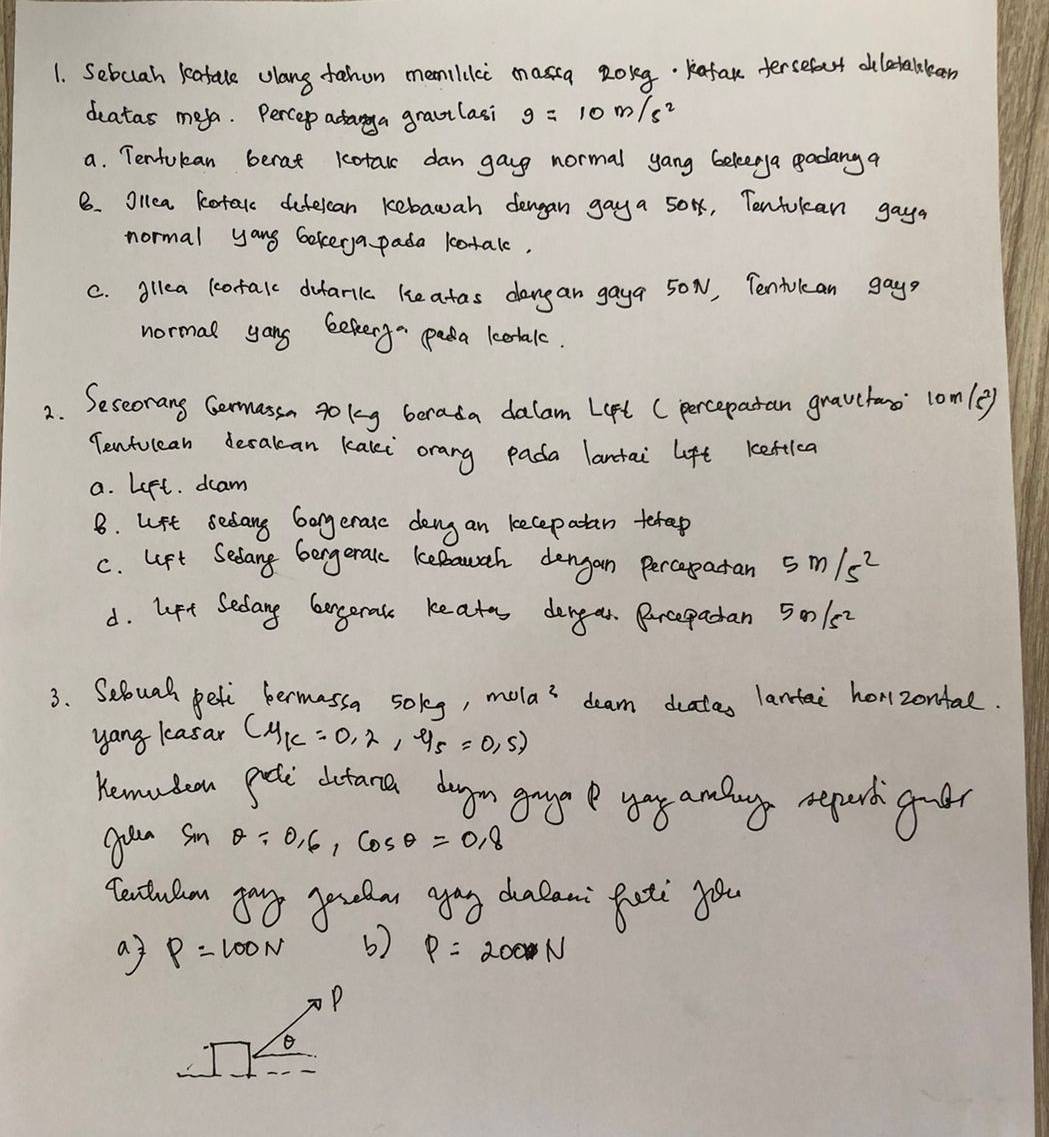 1. Sebuah kotak ulang tahun memiliki massa 20kg. Kotak tersebut diletakkan
diatas meja. Percepatannya gravitasi g = 10 m/s²
a. Tentukan berat kotak dan gaya normal yang bekerja padanya
b. Jika kotak ditekan kebawah dengan gaya 50N, Tentukan gaya
normal yang bekerja pada kotak.
c. Jika kotak ditarik keatas dengan gaya 50N, Tentukan gaya
normal yang bekerja pada kotak.
2. Seseorang bermassa 70kg berada dalam Lift (percepatan gravitasi 10m/s²)
Tentukan desakan kaki orang pada lantai lift ketika
a. Lift. diam
b. Lift sedang bergerak dengan kecepatan tetap
c. Lift Sedang bergerak kebawah dengan percepatan 5 m/s²
d. Lift Sedang bergerak keatas dengan percepatan 5 m/s²
3. Sebuah peti bermassa 50kg, mula² diam diatas lantai horizontal.
yang kasar (μk = 0,2, μs = 0,5)
Kemudian peti ditarik dengan gaya P yang seperti gmbr
jika Sin θ = 0,6, Cos θ = 0,8
Tentukan gaya gesekan yang dialami peti jika
a) P = 100N b) P = 200 N
P
θ